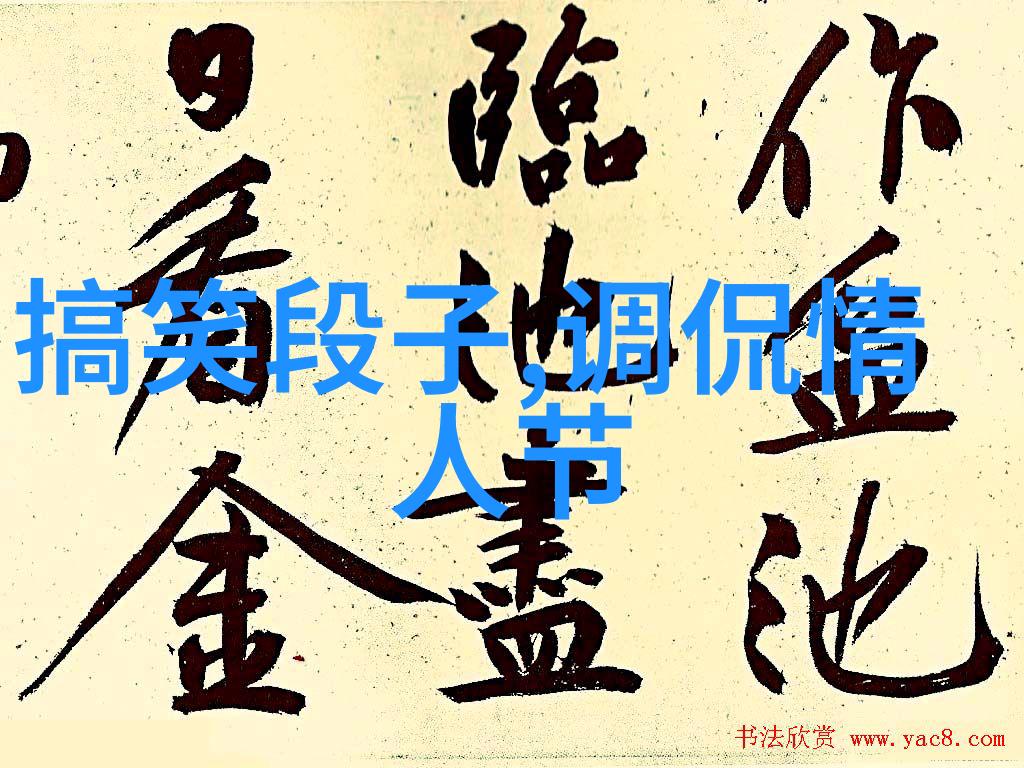 作盆池
臨池盡
日看金
搞笑段子,调侃情
人节
书法欣赏 www.yac8.com